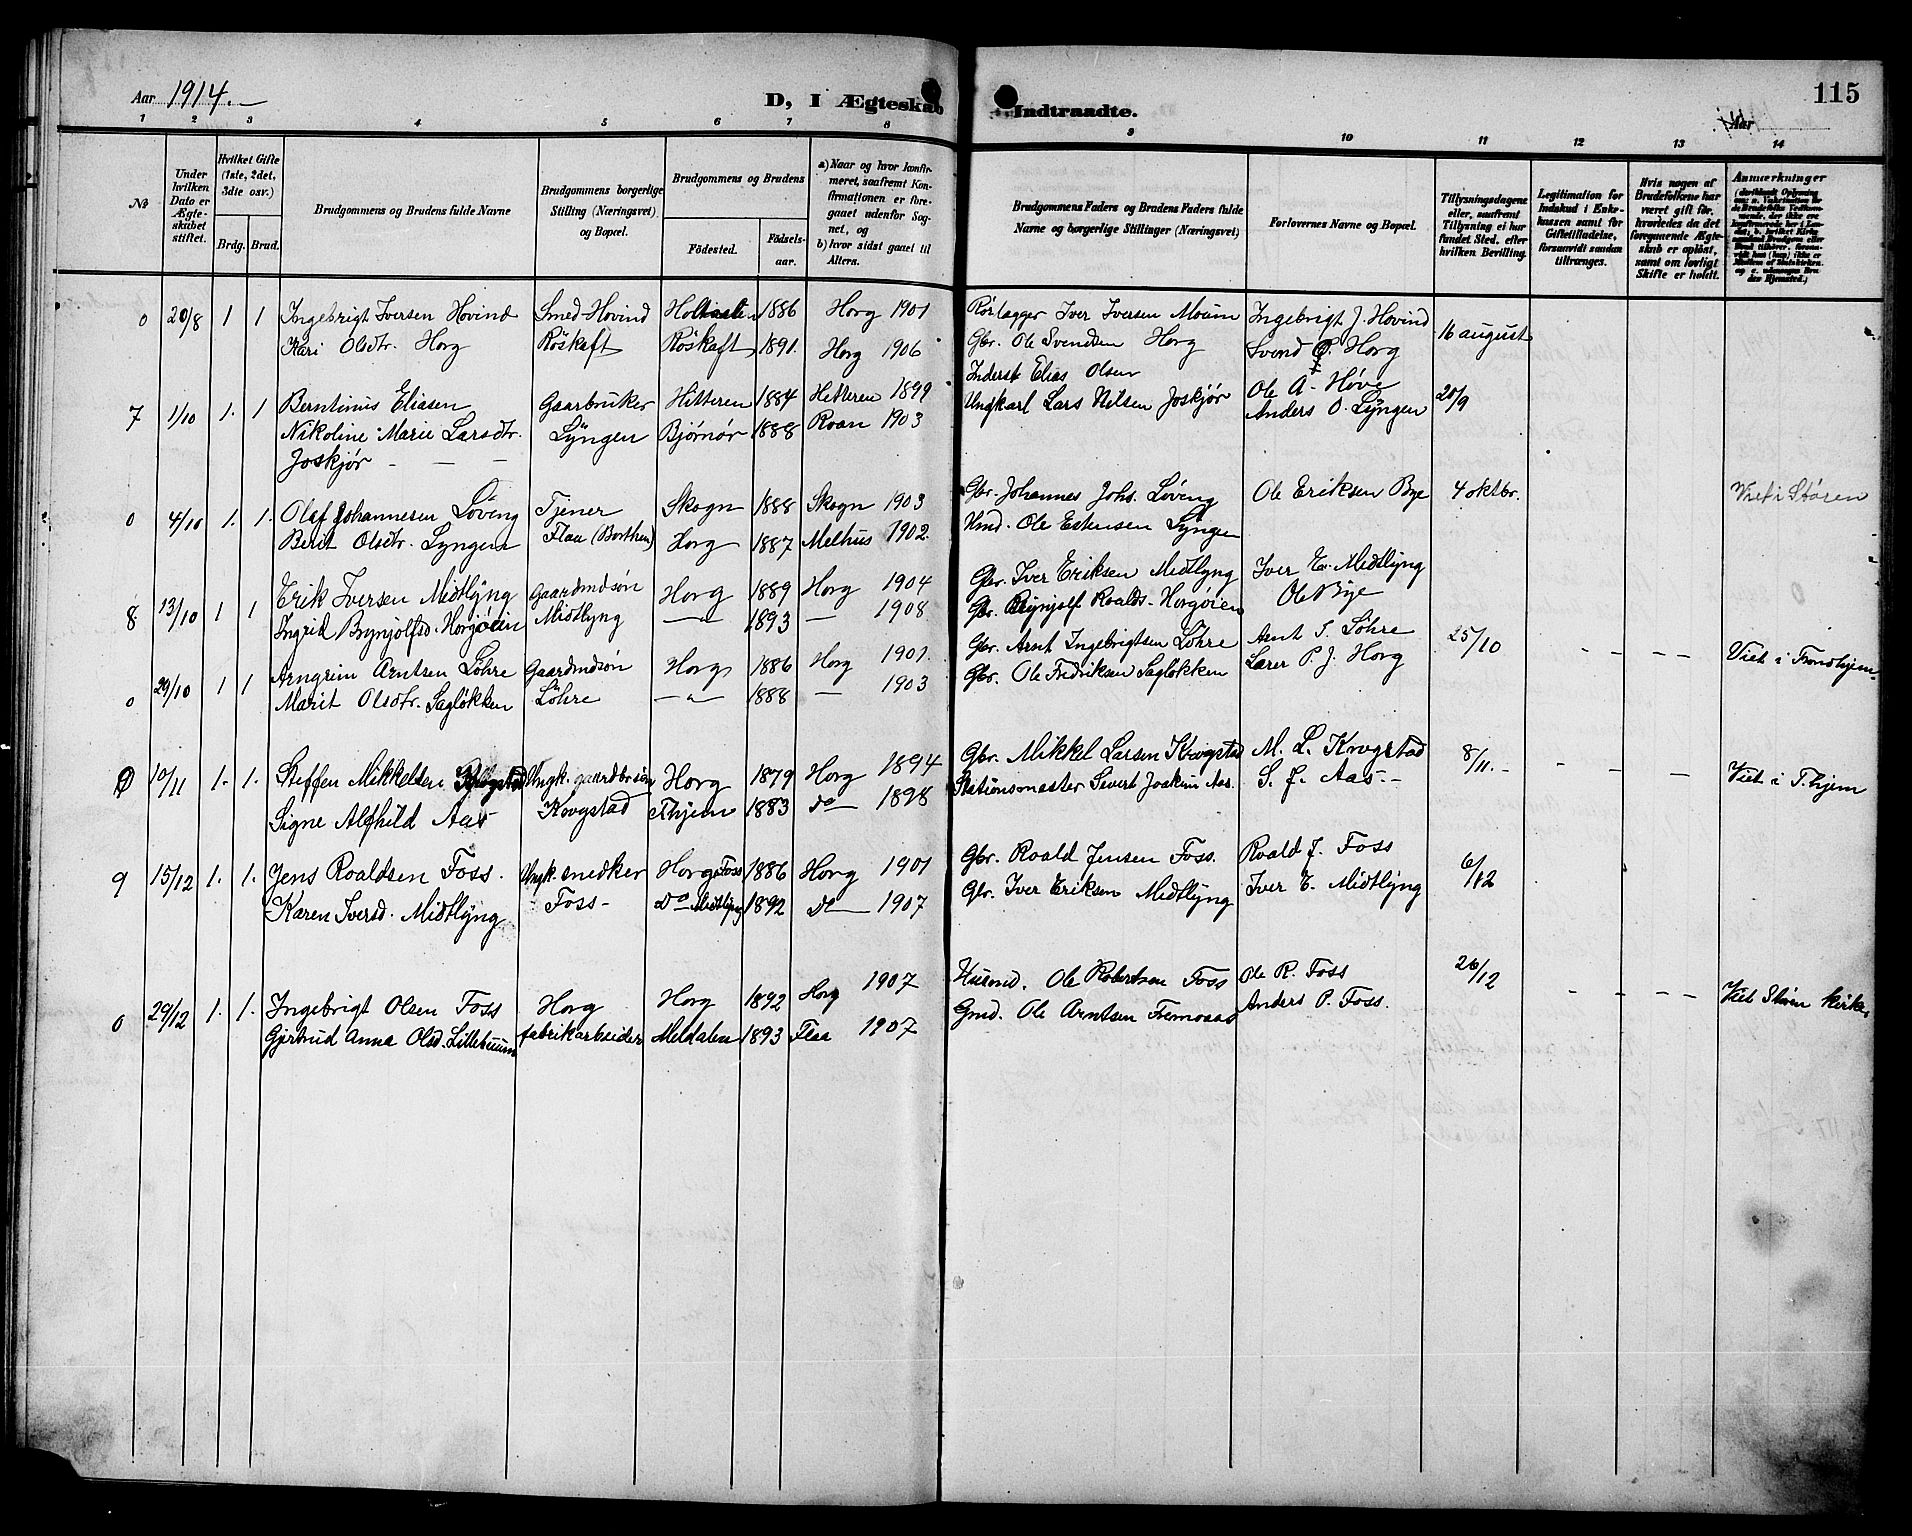 Aar 1914.
D, I Ægteskab Indtraadte.
115
Aar
1 2 3 4 5 6 7 8 9 10 11 12 13 14
№
Under hvilken Dato er Ægteskabet stiftet.
Hvilket Gifte (1ste, 2det, 3die osv.)
Brdg. Brud.
Brudgommens og Brudens fulde Navne
Brudgommens borgerlige Stilling (Næringsvei) og Bopæl.
Brudgommens og Brudens
Fødested.
Fødselsaar.
a) Naar og hvor konfirmeret, saafremt Konfirmationen er foregaaet udenfor Sognet, og
b) hvor sidst gaaet til Alters.
Brudgommens Faders og Brudens Faders fulde Navne og borgerlige Stillinger (Næringsvei)
Forlovernes Navne og Bopæl.
Tillysningsdagene eller, saafremt Tillysning ei har fundet Sted, efter hvilken Bevilling.
Legitimation for Indskud i Enkekassen samt for Giftetilladelse, forsaavidt saadan tiltrænges.
Hvis nogen af Brudefolkene har været gift før, hvorledes da det foregaaende Ægteskab er opløst, samt om lovligt Skifte er holdt.
Anmærkninger
0 20/8 1 1 Ingebrigt Iversen Hovind Smed Hovind 1886 Horg 1901 Rörlægger Iver Iversen Moum Ingebrigt J. Hovind 16 august
Kari Olsdtr. Horg Röskaft Röskaft 1891. Horg 1906 Gbr. Ole Svendsen Horg Svend O. Horg
7 1/10 1. 1 Berntinus Eliasen Gaarbruker Hitteren 1884 Hitteren 1899 Inderst Elias Olsen Ole A. Høve 20/9
Nikoline Marie Larsdtr. Lÿngen Bjørnør 1888 Roan 1903 Ungkarl Lars Nilsen Joskjør Anders O. Lÿngen
Joskjør - - -
0 4/10 1. 1. Olaf Johannesen Löving Tjener Skogn 1888 Skogn 1903 Gbr. Johannes Johs. Löving Ole Eriksen Bye 4 oktbr. Viet i Støren
Berit Olsdtr. Lyngen Flaa (Borthen) Horg 1887 Melhus 1902. Hmd. Ole Estensen Lyngen
8 13/10 1 1 Erik Iversen Midtlyng Gaardmdsøn Horg 1889 Horg 1904 Gbr. Iver Eriksen Midtlyng Iver E. Midtlyng 0
Ingrid Brynjolfsd. Horgøien Midtlyng —"— 1893 — 1908 Gbr. Brynjolf Roalds. Horgøien Ole Bye
0 29/10 1 1 Arngrim Arntsen Löhre Gaardmdsøn Horg 1886 Horg 1901. Gbr. Arnt Ingebrigtsen Löhre Arnt I. Löhre 25/10 - - - - Viet i Trondhjem
Marit Olsdtr. Sagløkken Löhre —"— 1888 — 1903 Gbr. Ole Fredriksen Sagløkken Lærer P. J. Horg
0 10/11 1. 1. Steffen Mikkelsen Krogstad Ungk. gaardbr.søn Horg 1879 Horg 1894 Gbr. Mikkel Larsen Krogstad M. L. Krogstad 8/11. - - - - Viet i T.hjem
Signe Alfhild Aas Krogstad Thjem 1883 do 1898 Stationsmester Sivert Joakim Aas. S. J. Aas.-
9 15/12 1. 1. Jens Roaldsen Foss. Ungk. snedker Horg Foss 1886 Horg 1901 Gbr. Roald Jensen Foss. Roald J. Foss 6/12
Karen Iversd. Midtlÿng Foss- Do Midtlyng 1892 Do 1907 Gbr. Iver Eriksen Midtlÿng Iver E. Midtlÿng
0 29/12 1. 1. Ingebrigt Olsen Foss Horg Horg 1892 Horg 1907 Husmd. Ole Robertsen Foss Ole R. Foss 26/12 - - - - Viet Støren kirke
Gjertrud Anna Olsd. Lillebuum fabrikarbeider Meldalen 1893 Flaa 1907 Gmd. Ole Arntsen Fremosaas Anders P. Foss.